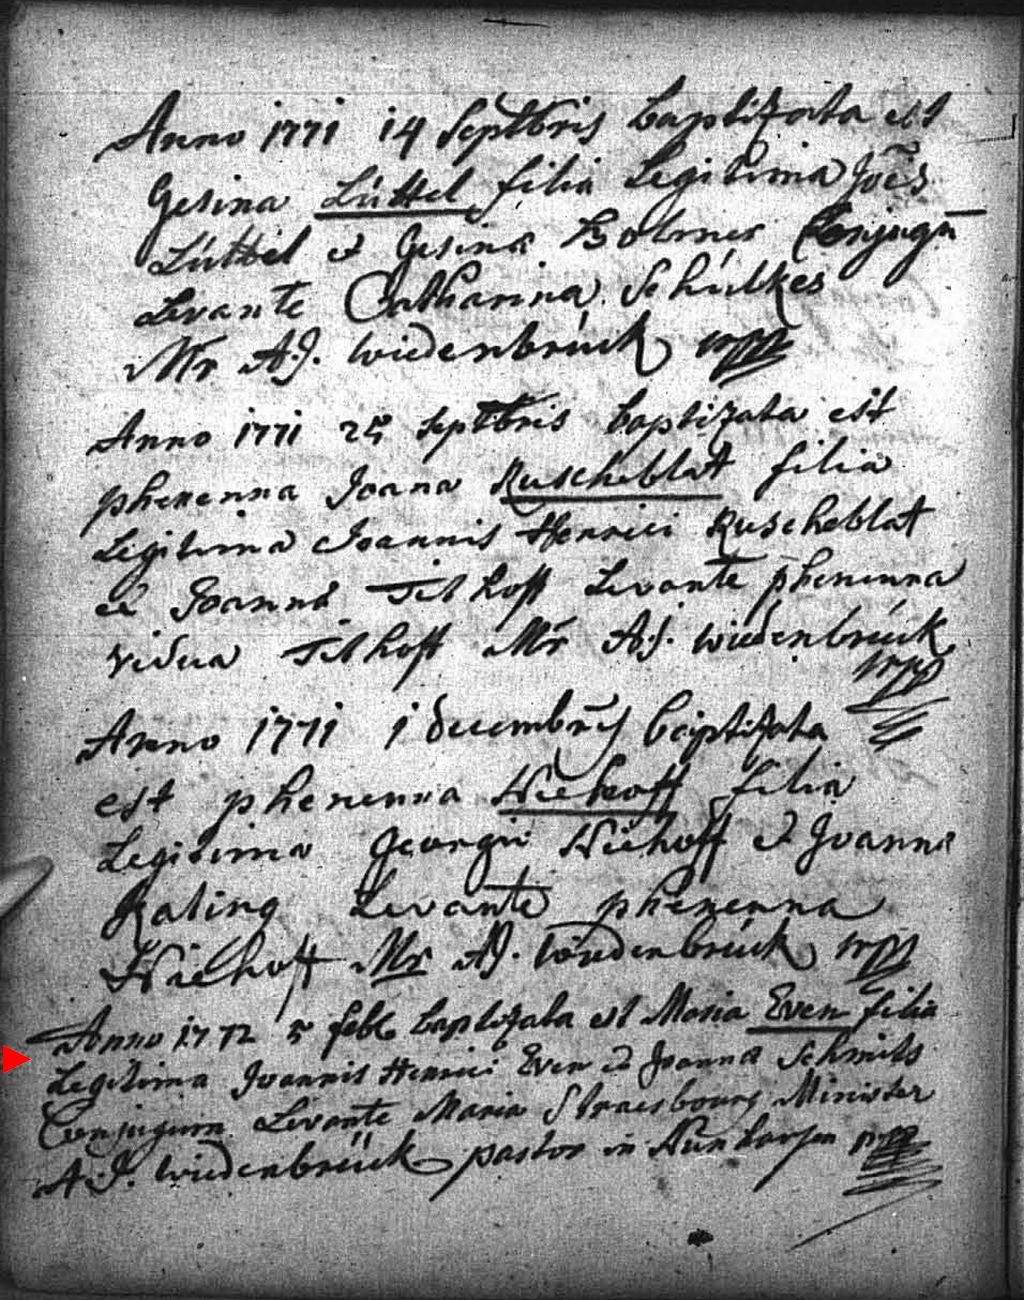 Anno 1771 14 Septbris baptizata est
Gesina Lúttel filia Legitima Joēs
Lúttel et Gesina Conjugū
Levante Catharina Schúlkes
Mr A.J. wiedenbrúck mpp
Anno 1771 25 Septbris baptizata est
phenenna Joana Ruscheblat filia
Legitima Joannis Henrici Ruscheblat
et Joanna Tilhoff Levante phenenna
vidua Tilhoff Mr A.J. wiedenbrúck
mpp
Anno 1771 1 decembrs baptizata
est phenenna Niehoff filia
Legitima Georgii Niehoff et Joanna
Rating Levante phenenna
Niehoff Mr AJ. wiedenbrúck mpp
Anno 1772 5 feb baptizata est Maria Even filia
Legitima Joannis Henrici Even et Joanna Schmits
Conjugum Levante Maria Straesbourg Minister
A.J. wiedenbrúck pastor in